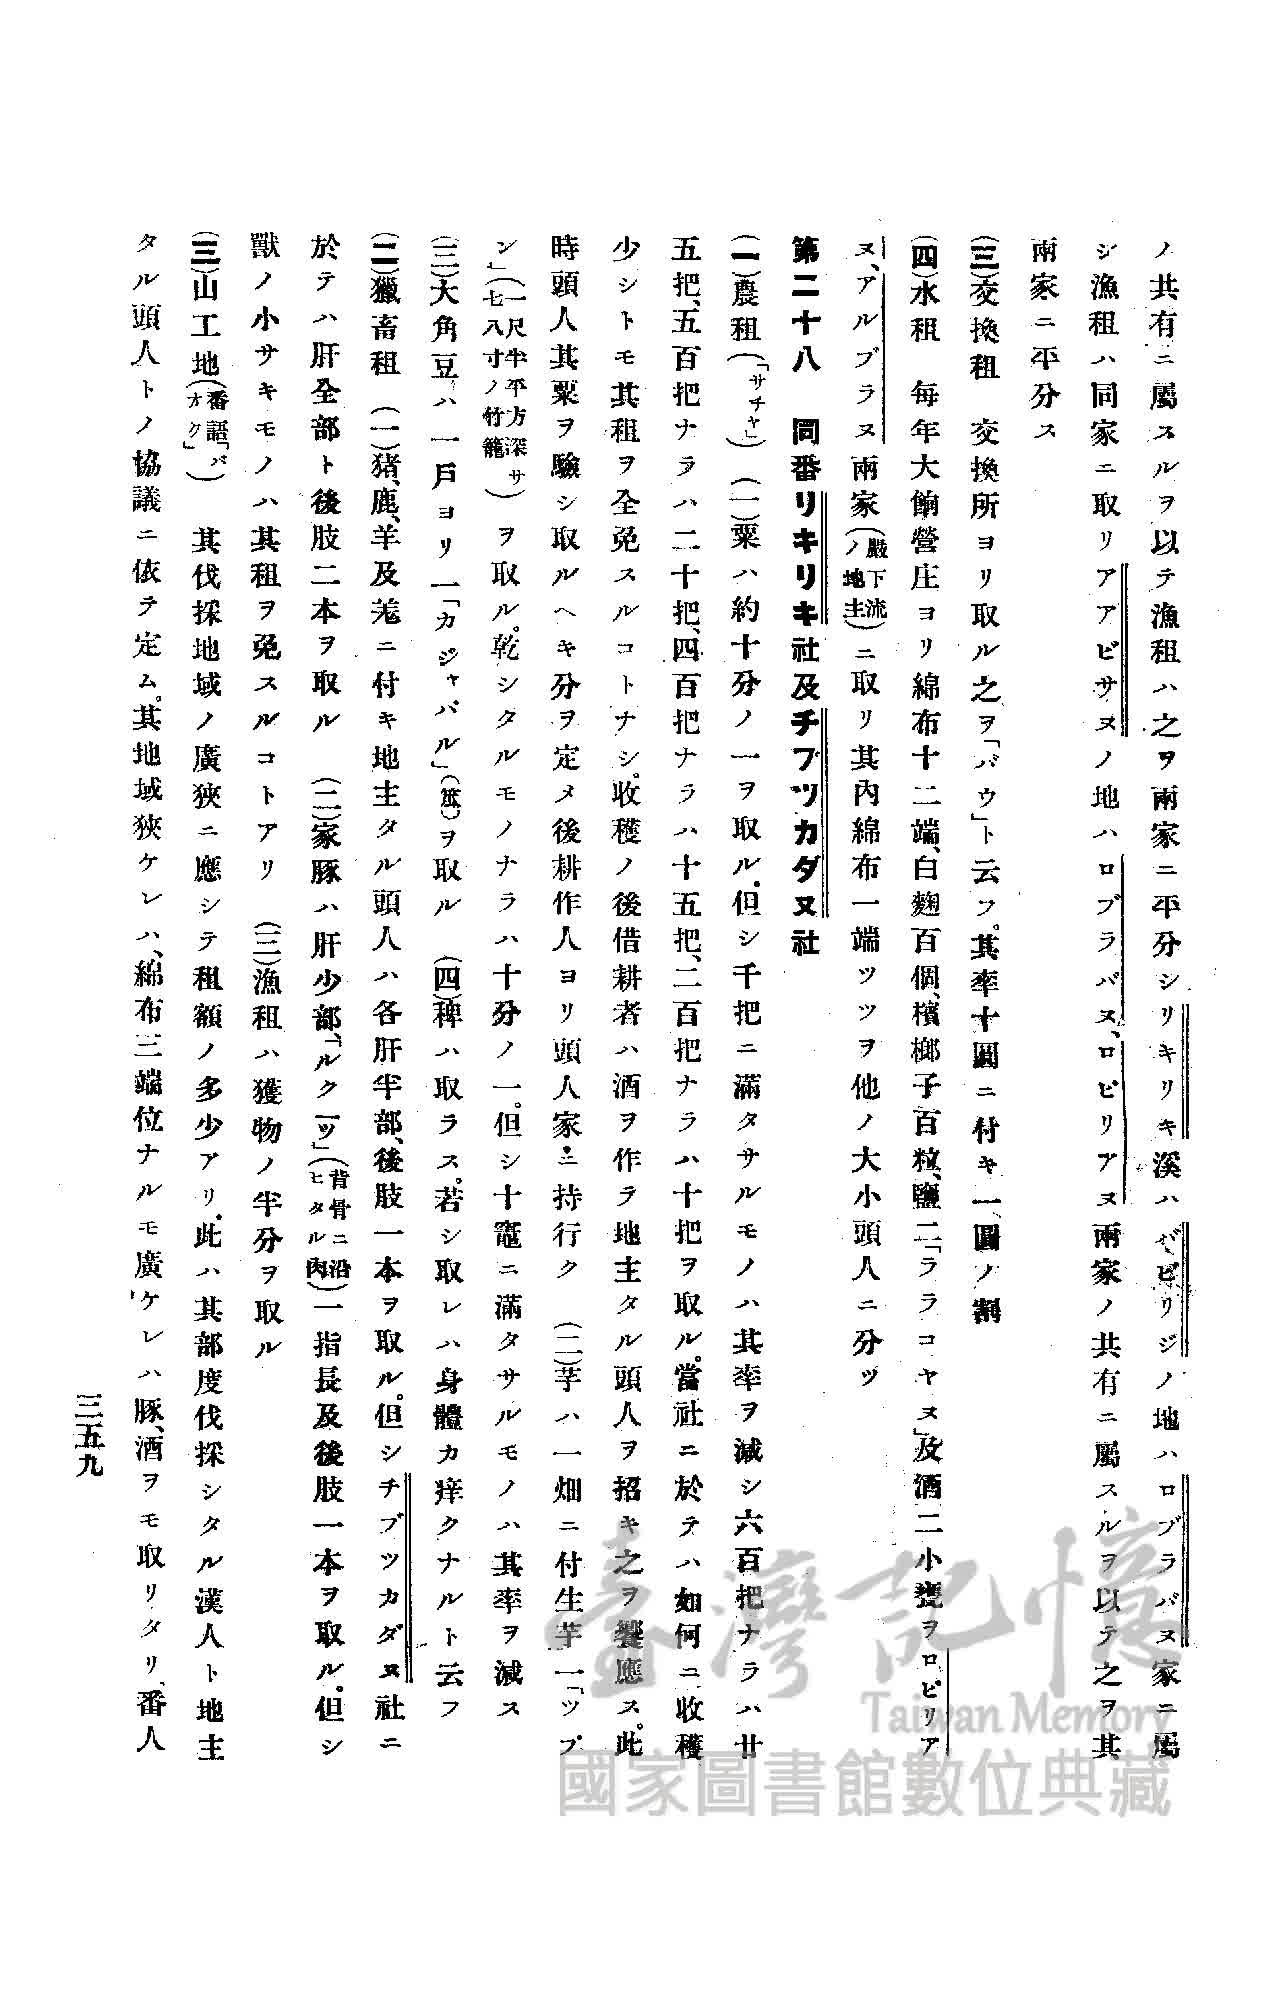 ノ共有ニ屬スルヲ以テ漁租ハ之ヲ兩家ニ平分シリキリキ溪ハバビリジノ地ハロブラバヌ家ニ屬
シ漁租ハ同家ニ取リアアビサヌノ地ハロブラバヌ、ロピリアヌ兩家ノ共有ニ屬スルヲ以テ之ヲ其
兩家ニ平分ス
(三)交換租 交換所ヨリ取ル之ヲ「バウ」ト云フ。其率十圓ニ付キ一圓ノ割
(四)水租 每年大餉營庄ヨリ綿布十二端、白麴百個、檳榔子百粒、鹽二「ララコヤヌ」及酒二小甕ヲロピリア
ヌ、アルブラヌ兩家(嚴下流ノ地主)ニ取リ其內綿布一端ツツヲ他ノ大小頭人ニ分ツ
第二十八 同番リキリキ社及チブツカダヌ社
(一)農租(「サチヤ」) (一)粟ハ約十分ノ一ヲ取ル。但シ千把ニ滿タサルモノハ其率ヲ減シ六百把ナラハ廿
五把、五百把ナラハ二十把、四百把ナラハ十五把、二百把ナラハ十把ヲ取ル。當社ニ於テハ如何ニ收穫
少シトモ其租ヲ全免スルコトナシ。收穫ノ後借耕者ハ酒ヲ作ラ地主タル頭人ヲ招キ之ヲ饗應ス。此
時頭人其粟ヲ驗シ取ルヘキ分ヲ定メ後耕作人ヨリ頭人家ニ持行ク (二)芋ハ一畑ニ付生芋一「ツブ
ン」(一尺半平方深サ七八寸ノ竹籠)ヲ取ル。乾シタルモノナラハ十分ノ一。但シ十竈ニ滿タサルモノハ其率ヲ減ス
(三)大角豆ハ一戶ヨリ一「カジャバル」(笊)ヲ取ル (四)稗ハ取ラス。若シ取レハ身體カ痒クナルト云フ
(二)獵畜租 (一)猪、鹿、羊及羌ニ付キ地主タル頭人ハ各肝半部、後肢一本ヲ取ル。但シチブツカダヌ社ニ
於テハ肝全部ト後肢二本ヲ取ル (二)家豚ハ肝少部、「ルク一ツ」(背骨ニ沿ヒタル肉)一指長及後肢一本ヲ取ル。但シ
獸ノ小サキモノハ其租ヲ免スルコトアリ (三)漁租ハ獲物ノ半分ヲ取ル
(三)山工地(番語「バオク」) 其伐採地域ノ廣狹ニ應シテ租額ノ多少アリ。此ハ其部度伐採シタル漢人ト地主
タル頭人トノ協議ニ依テ定ム。其地域狹ケレハ、綿布三端位ナルモ廣ケレハ豚、酒ヲモ取リタリ、番人
三五九
臺灣記憶
Taiwan Memory
國家圖書館數位典藏